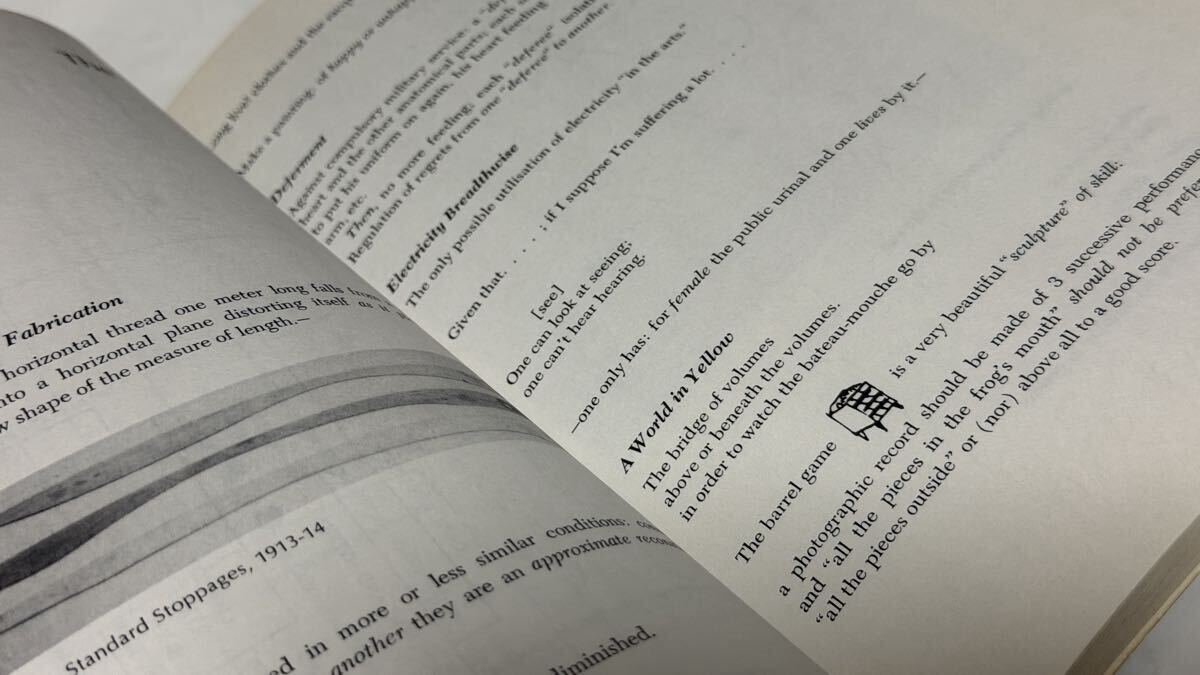 Fabrication
horizontal thread one meter long falls from
to a horizontal plane distorting itself as it
shape of the measure of length.—
Standard Stoppages, 1913-14
in more or less similar conditions:
another they are an approximate
diminished.
clothes and the
a painting: of happy or
Deferment
Against compulsory military service: a
heart and the other anatomical parts; each
to put his uniform on again, his heart feeding
arm, etc.
Then, no more feeding; each "deferee"
Regulation of regrets from one "deferee" to another.
Electricity Breadthwise
The only possible utilisation of electricity "in the arts."
Given that. . . . ; if I suppose I'm suffering a lot. . . .
[see]
One can look at seeing;
one can't hear hearing.
—one only has: for female the public urinal and one lives by it.—
A World in Yellow
The bridge of volumes
above or beneath the volumes.
in order to watch the bateau-mouche go by
The barrel game is a very beautiful "sculpture" of skill:
a photographic record should be made of 3 successive
and "all the pieces in the frog's mouth" should not be
"all the pieces outside" or (nor) above all to a good score.